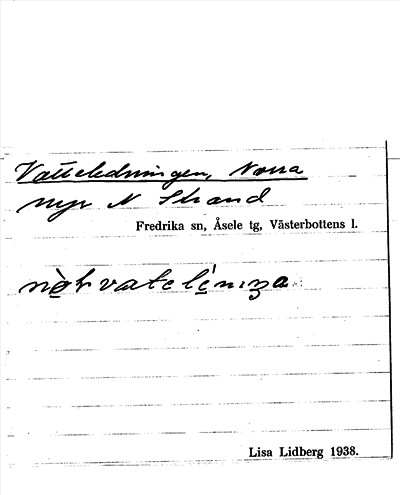 Vatteledningen, Norra
myr N Strand
Fredrika sn, Åsele tg, Västerbottens l.
Lisa Lidberg 1938.